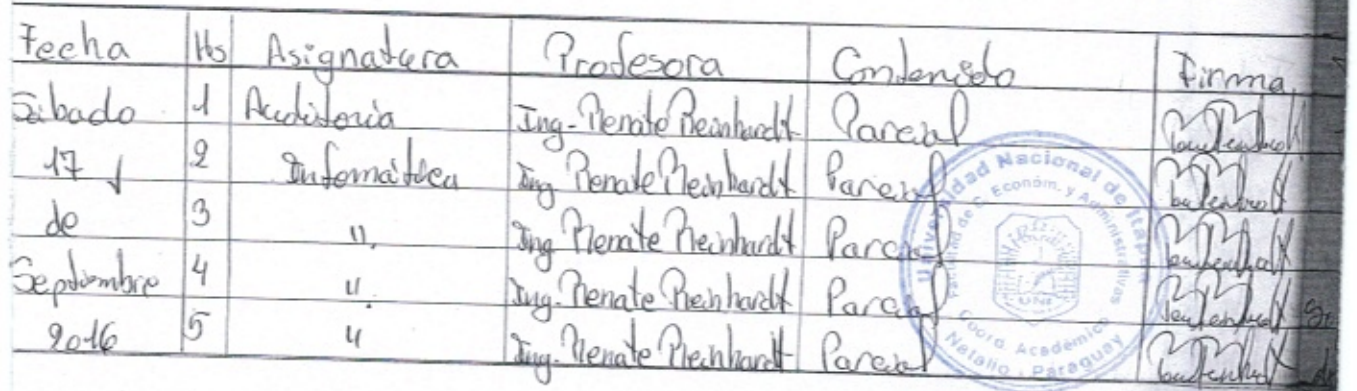 Fecha Hs Asignatura Profesora Contenido Firma
Sábado 1 Auditoria Ing. Renate Reinhardt Parcial
17 2 Informática Ing Renate Reinhardt Parcial
de 3 " Ing Renate Reinhardt Parcial
Septiembre 4 " Ing. Renate Reinhardt Parcial
2016 5 " Ing. Renate Reinhardt Parcial
Universidad Nacional de Itapúa
Facultad de C. Económ. y Administrativas
UNI
Coord. Académica
Natalio - Paraguay